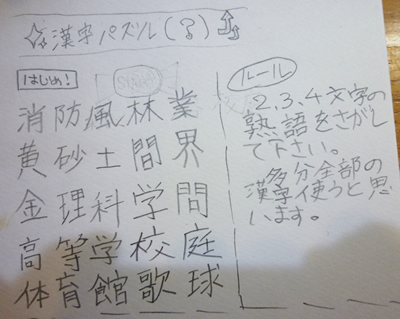 漢字パズル(3)
はじめ!
消防風林業
黄砂土間界
金理科学問
高等学校庭
体育館歌球
ルール
2、3、4文字の
熟語をさがし
て下さい。
多分全部の
漢字使うと思
います。